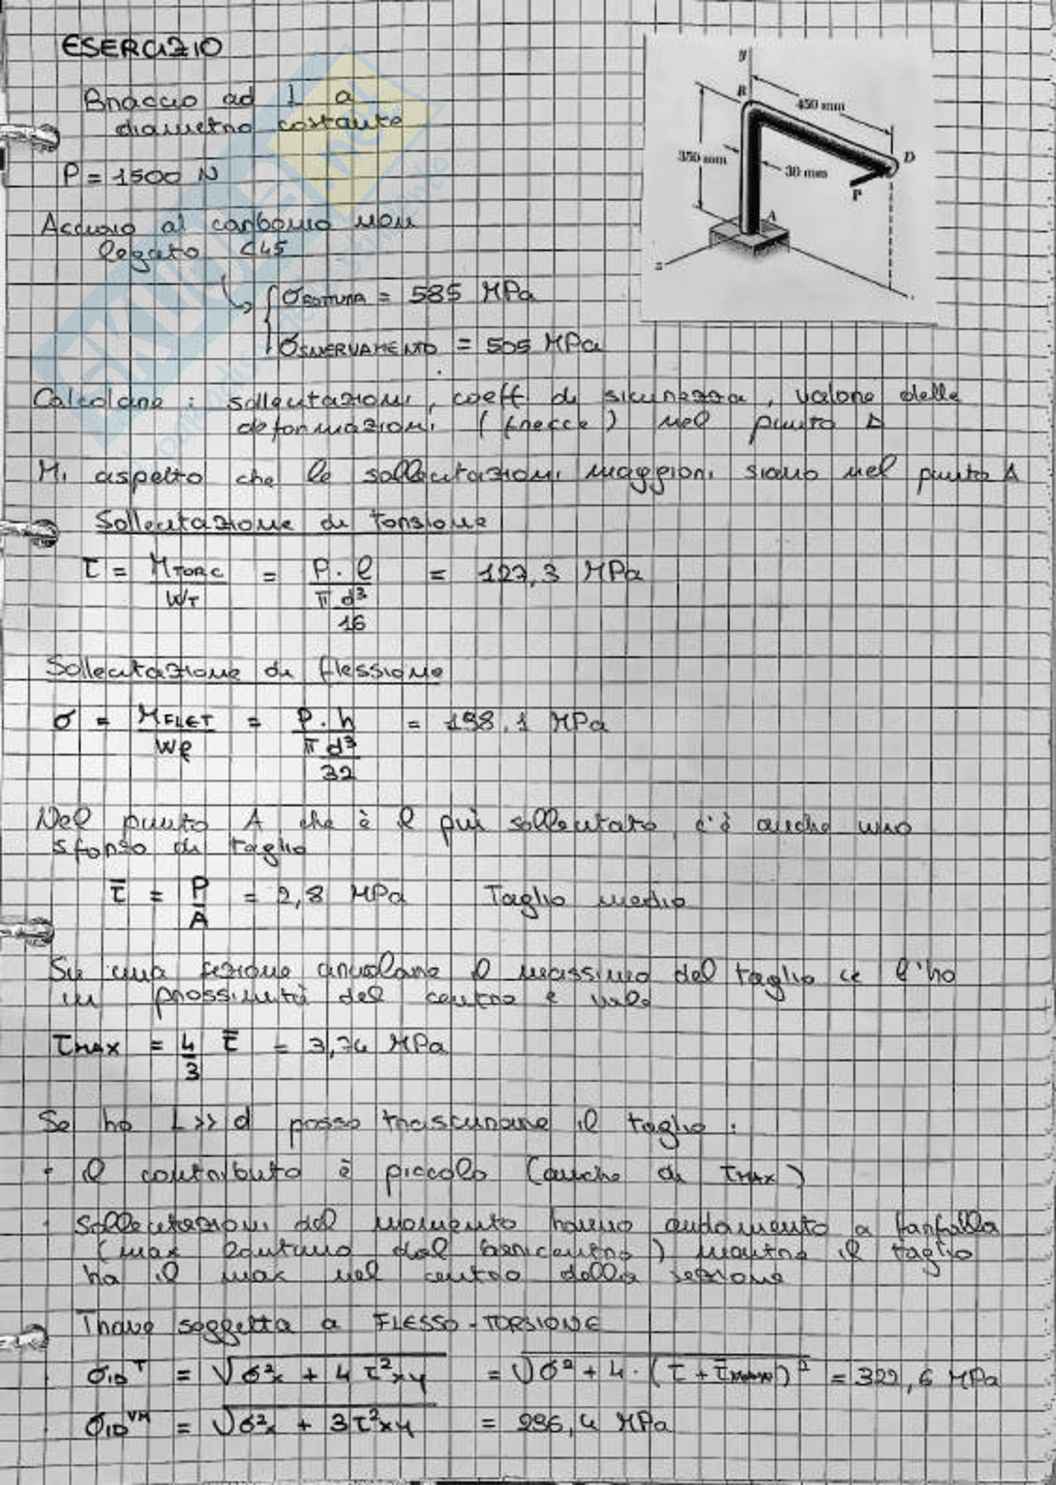 ESERCIZIO
Braccio ad L a
diametro costante
P = 1500 N
Acciaio al carbonio non
legato C45
σROTTURA = 585 MPa
σSNERVAMENTO = 505 MPa
y
B
450 mm
350 mm
30 mm
D
P
A
z
Calcolare : sollecitazioni, coeff. di sicurezza, valore delle
deformazioni (frecce) nel punto D
Mi aspetto che le sollecitazioni maggiori siano nel punto A
Sollecitazione di torsione
τ = MTORC / WT = P · l / (π d³ / 16) = 127,3 MPa
Sollecitazione di flessione
σ = MFLET / Wf = P · h / (π d³ / 32) = 198,1 MPa
Nel punto A che è il più sollecitato, c'è anche uno
sforzo di taglio
τ̅ = P / A = 2,8 MPa Taglio medio
Su una sezione circolare il massimo del taglio ce l'ho
in prossimità del centro e vale
τMAX = 4/3 τ̅ = 3,74 MPa
Se ho L >> d posso trascurare il taglio :
· il contributo è piccolo (anche di τMAX)
· Sollecitazioni del momento hanno andamento a farfalla
(max lontano dal baricentro) mentre il taglio
ha il max nel centro della sezione
Trave soggetta a FLESSO-TORSIONE
σID^T = √σ²x + 4 τ²xy = √σ² + 4 · (τ + )² = 322,6 MPa
σID^VM = √σ²x + 3τ²xy = 296,4 MPa